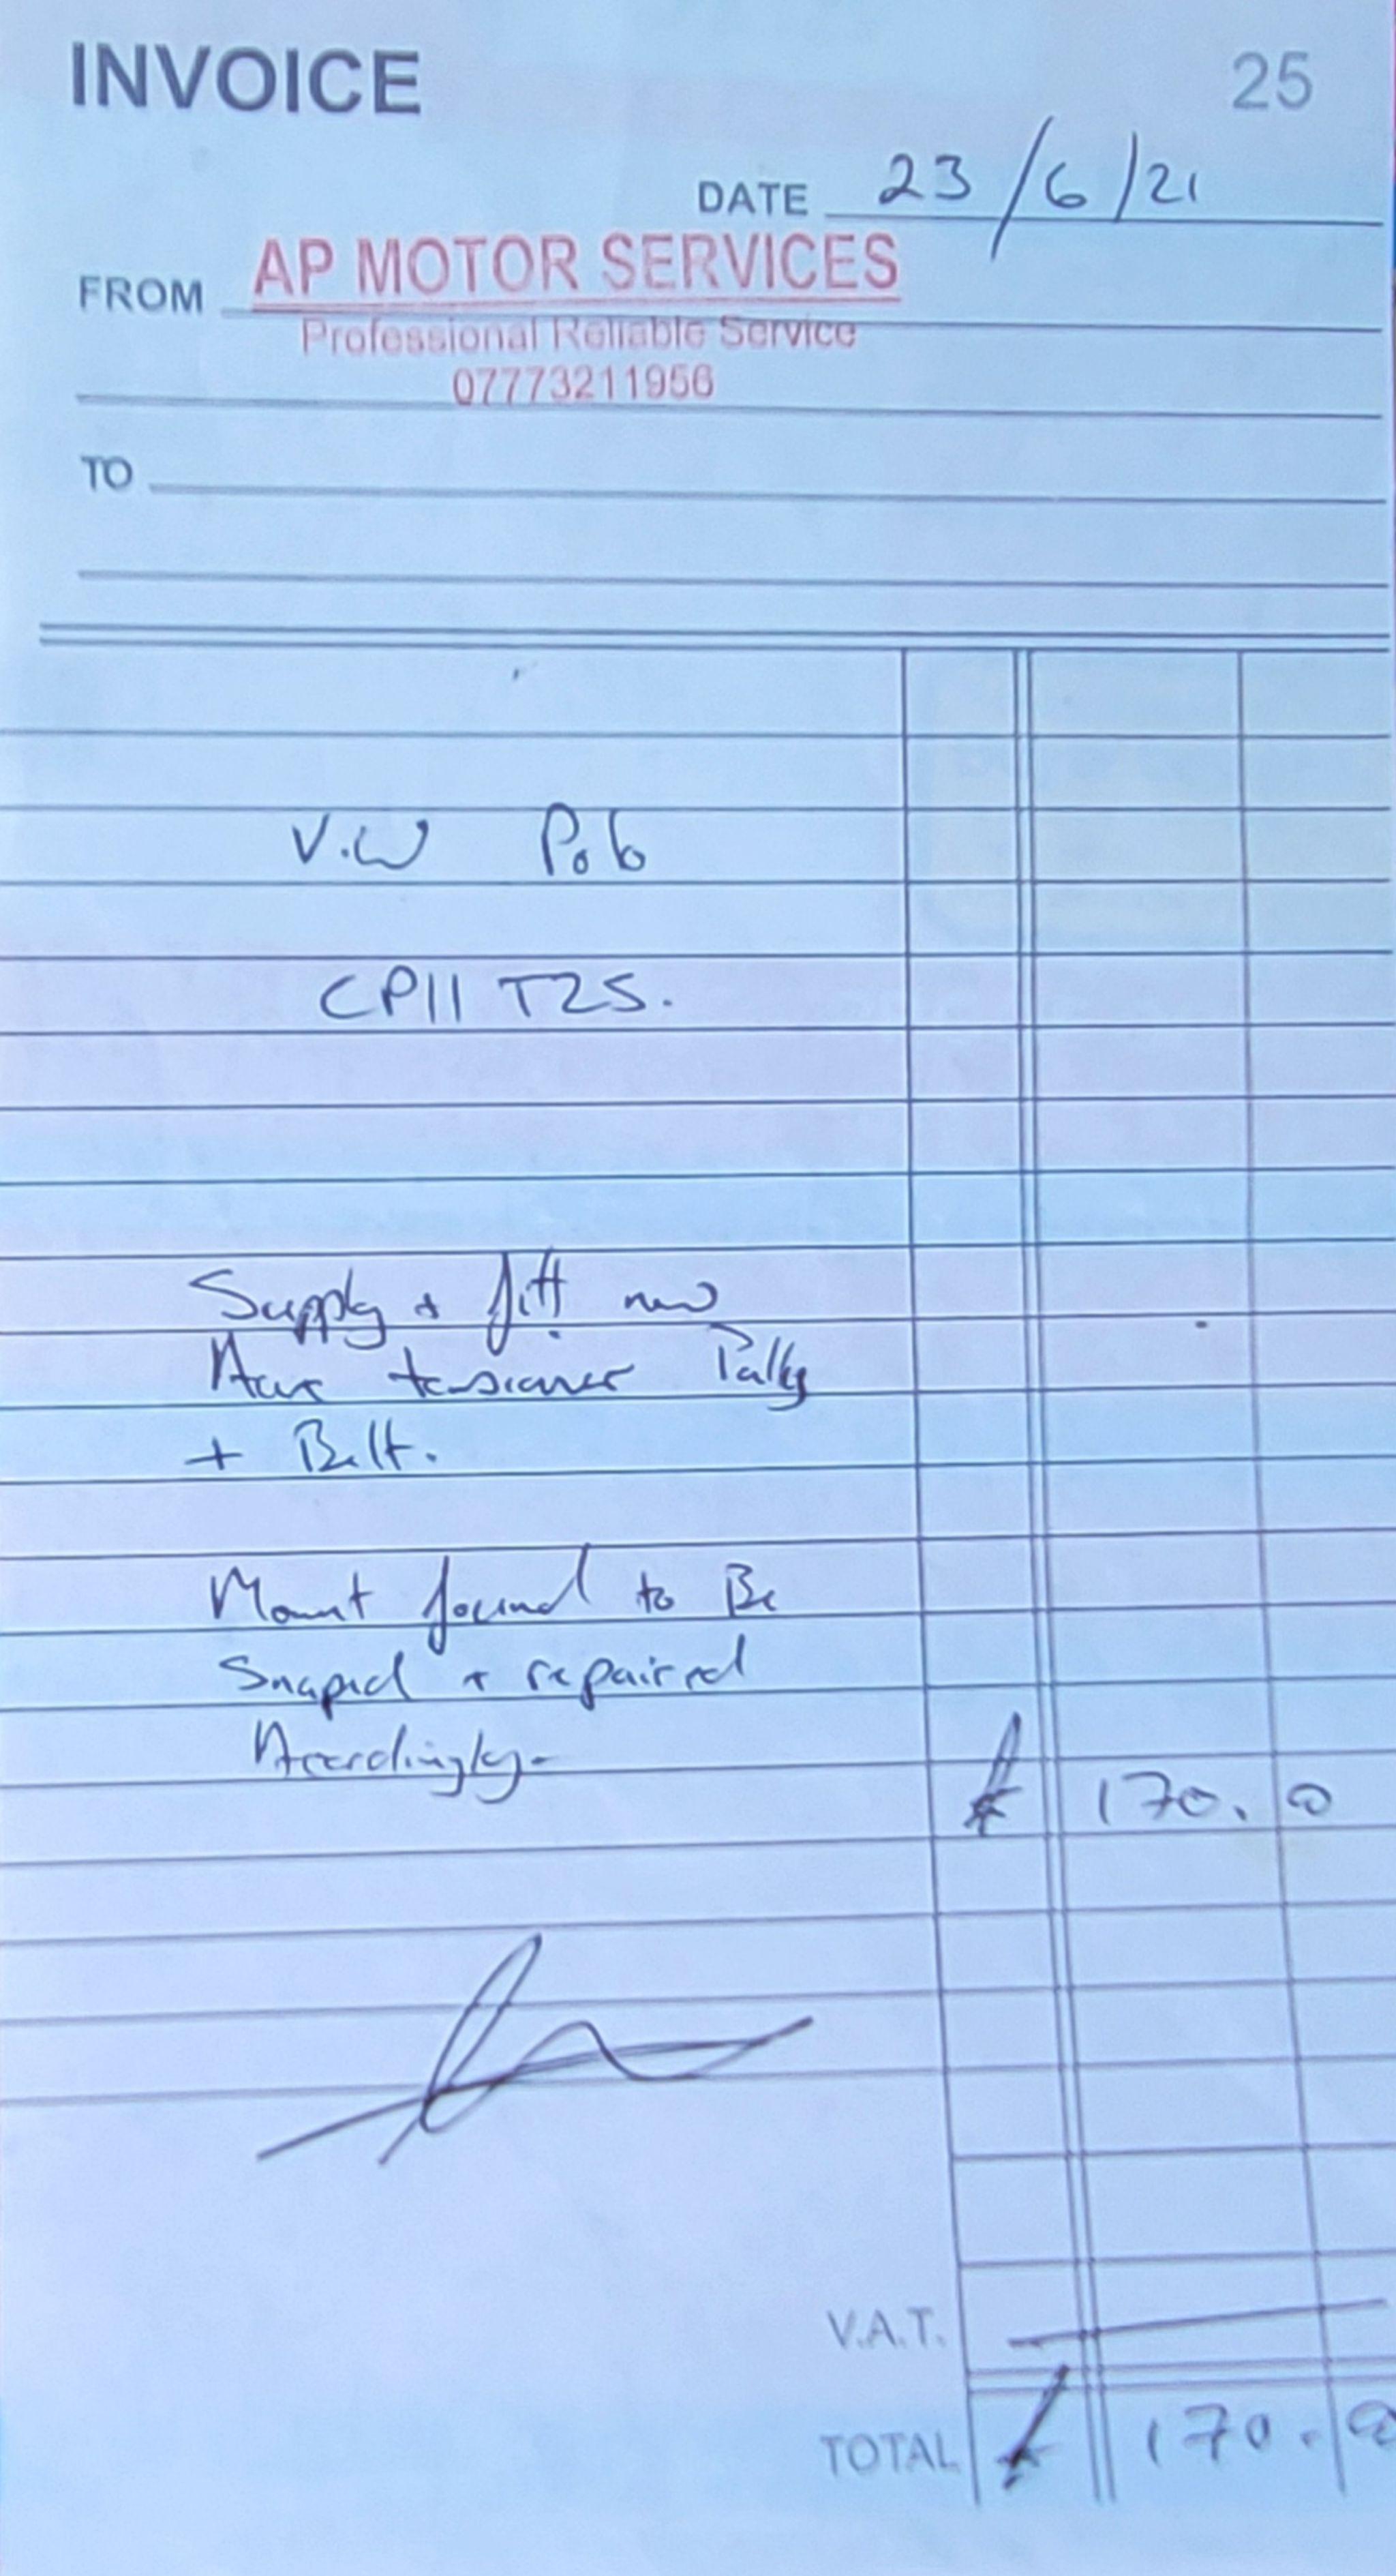 INVOICE 25
DATE 23/6/21
FROM AP MOTOR SERVICES
Professional Reliable Service
07773211956
TO
V.W Polo
CP11 TZS.
Supply + fitt new
tensioner Pully
+ Belt.
Mount found to Be
Snaped + repaired
Accordingly.
£ 170.00
V.A.T.
TOTAL £ 170.00